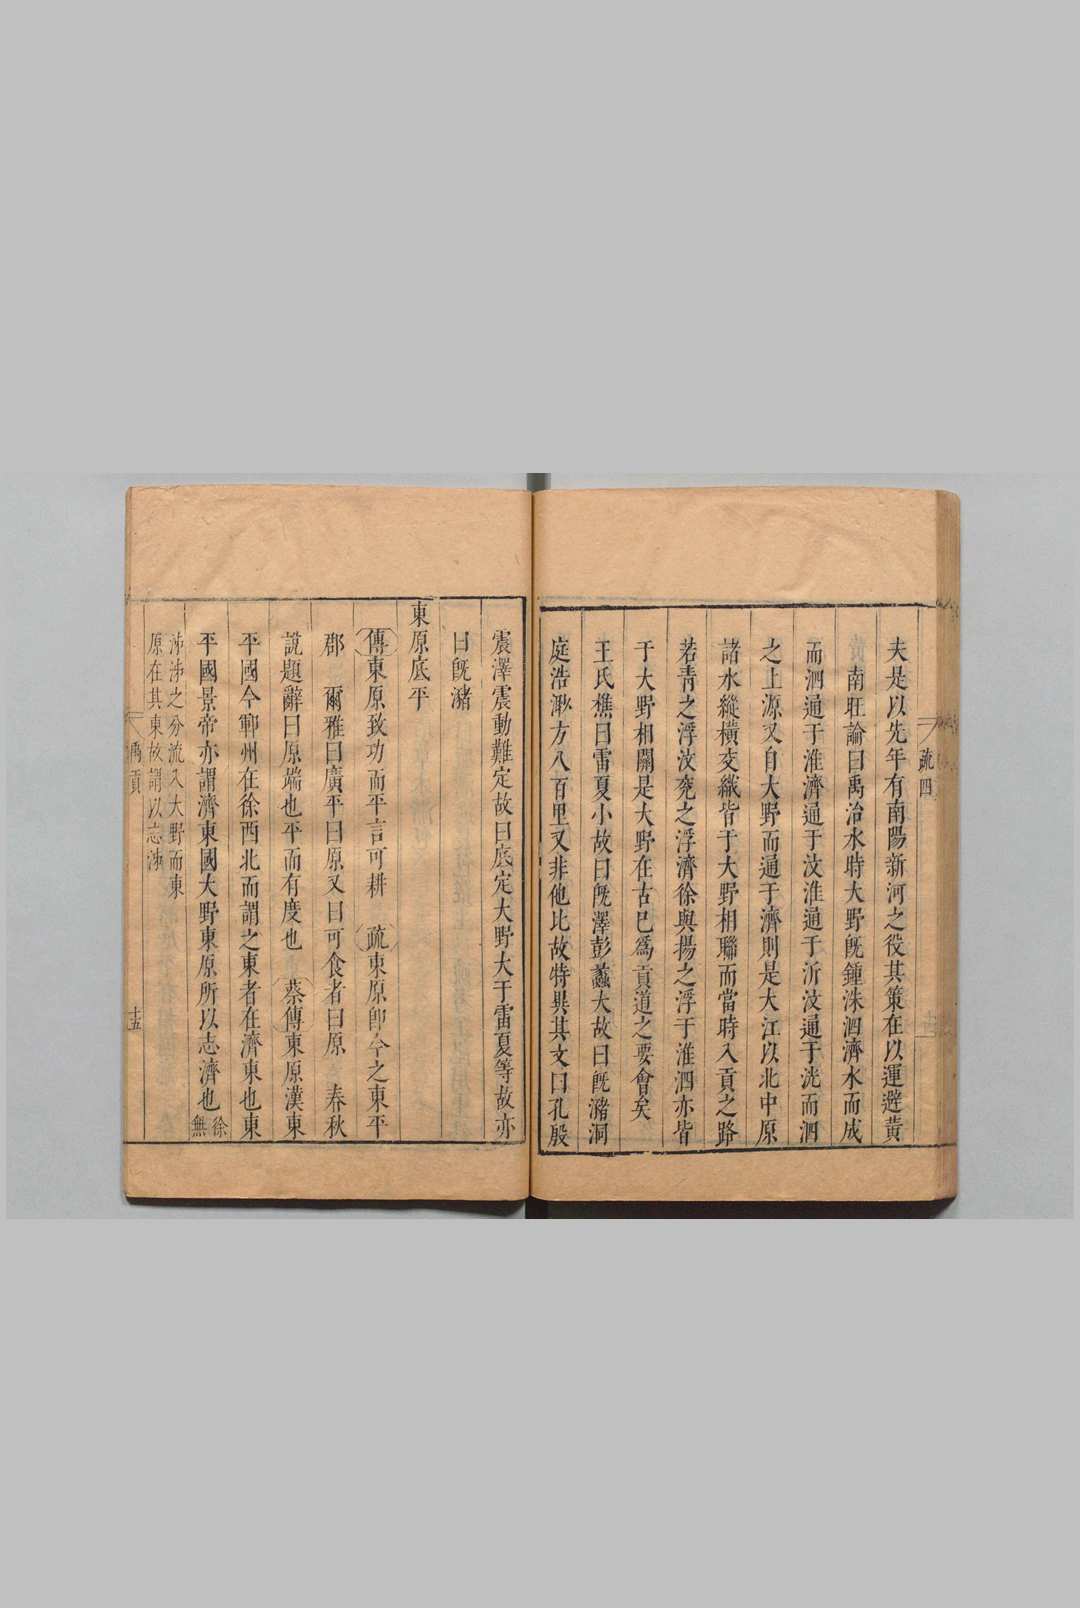 疏四
夫是以先年有南陽新河之役其策在以運避黃
南旺論曰禹治水時大野既鍾洙泗濟水而成
而泗通于淮濟通于汶淮通于沂汶通于洸而泗
之上源又自大野而通于濟則是大江以北中原
諸水縱橫交織皆于大野相聯而當時入貢之路
若青之浮汶兖之浮濟徐與揚之浮于淮泗亦皆
于大野相關是大野在古已爲貢道之要會矣
王氏樵曰雷夏小故曰旣澤彭蠡大故曰旣瀦洞
庭浩渺方八百里又非他比故特異其文曰孔殷
震澤震動難定故曰底定大野大于雷夏等故亦
曰旣瀦
東原底平
傳東原致功而平言可耕 疏東原卽今之東平
郡 爾雅曰廣平曰原又曰可食者曰原 春秋
說題辭曰原端也平而有度也 蔡傳東原漢東
平國今鄆州在徐西北而謂之東者在濟東也東
平國景帝亦謂濟東國大野東原所以志濟也徐無
泲泲之分流入大野而東
原在其東故謂以志泲
禹貢
十五